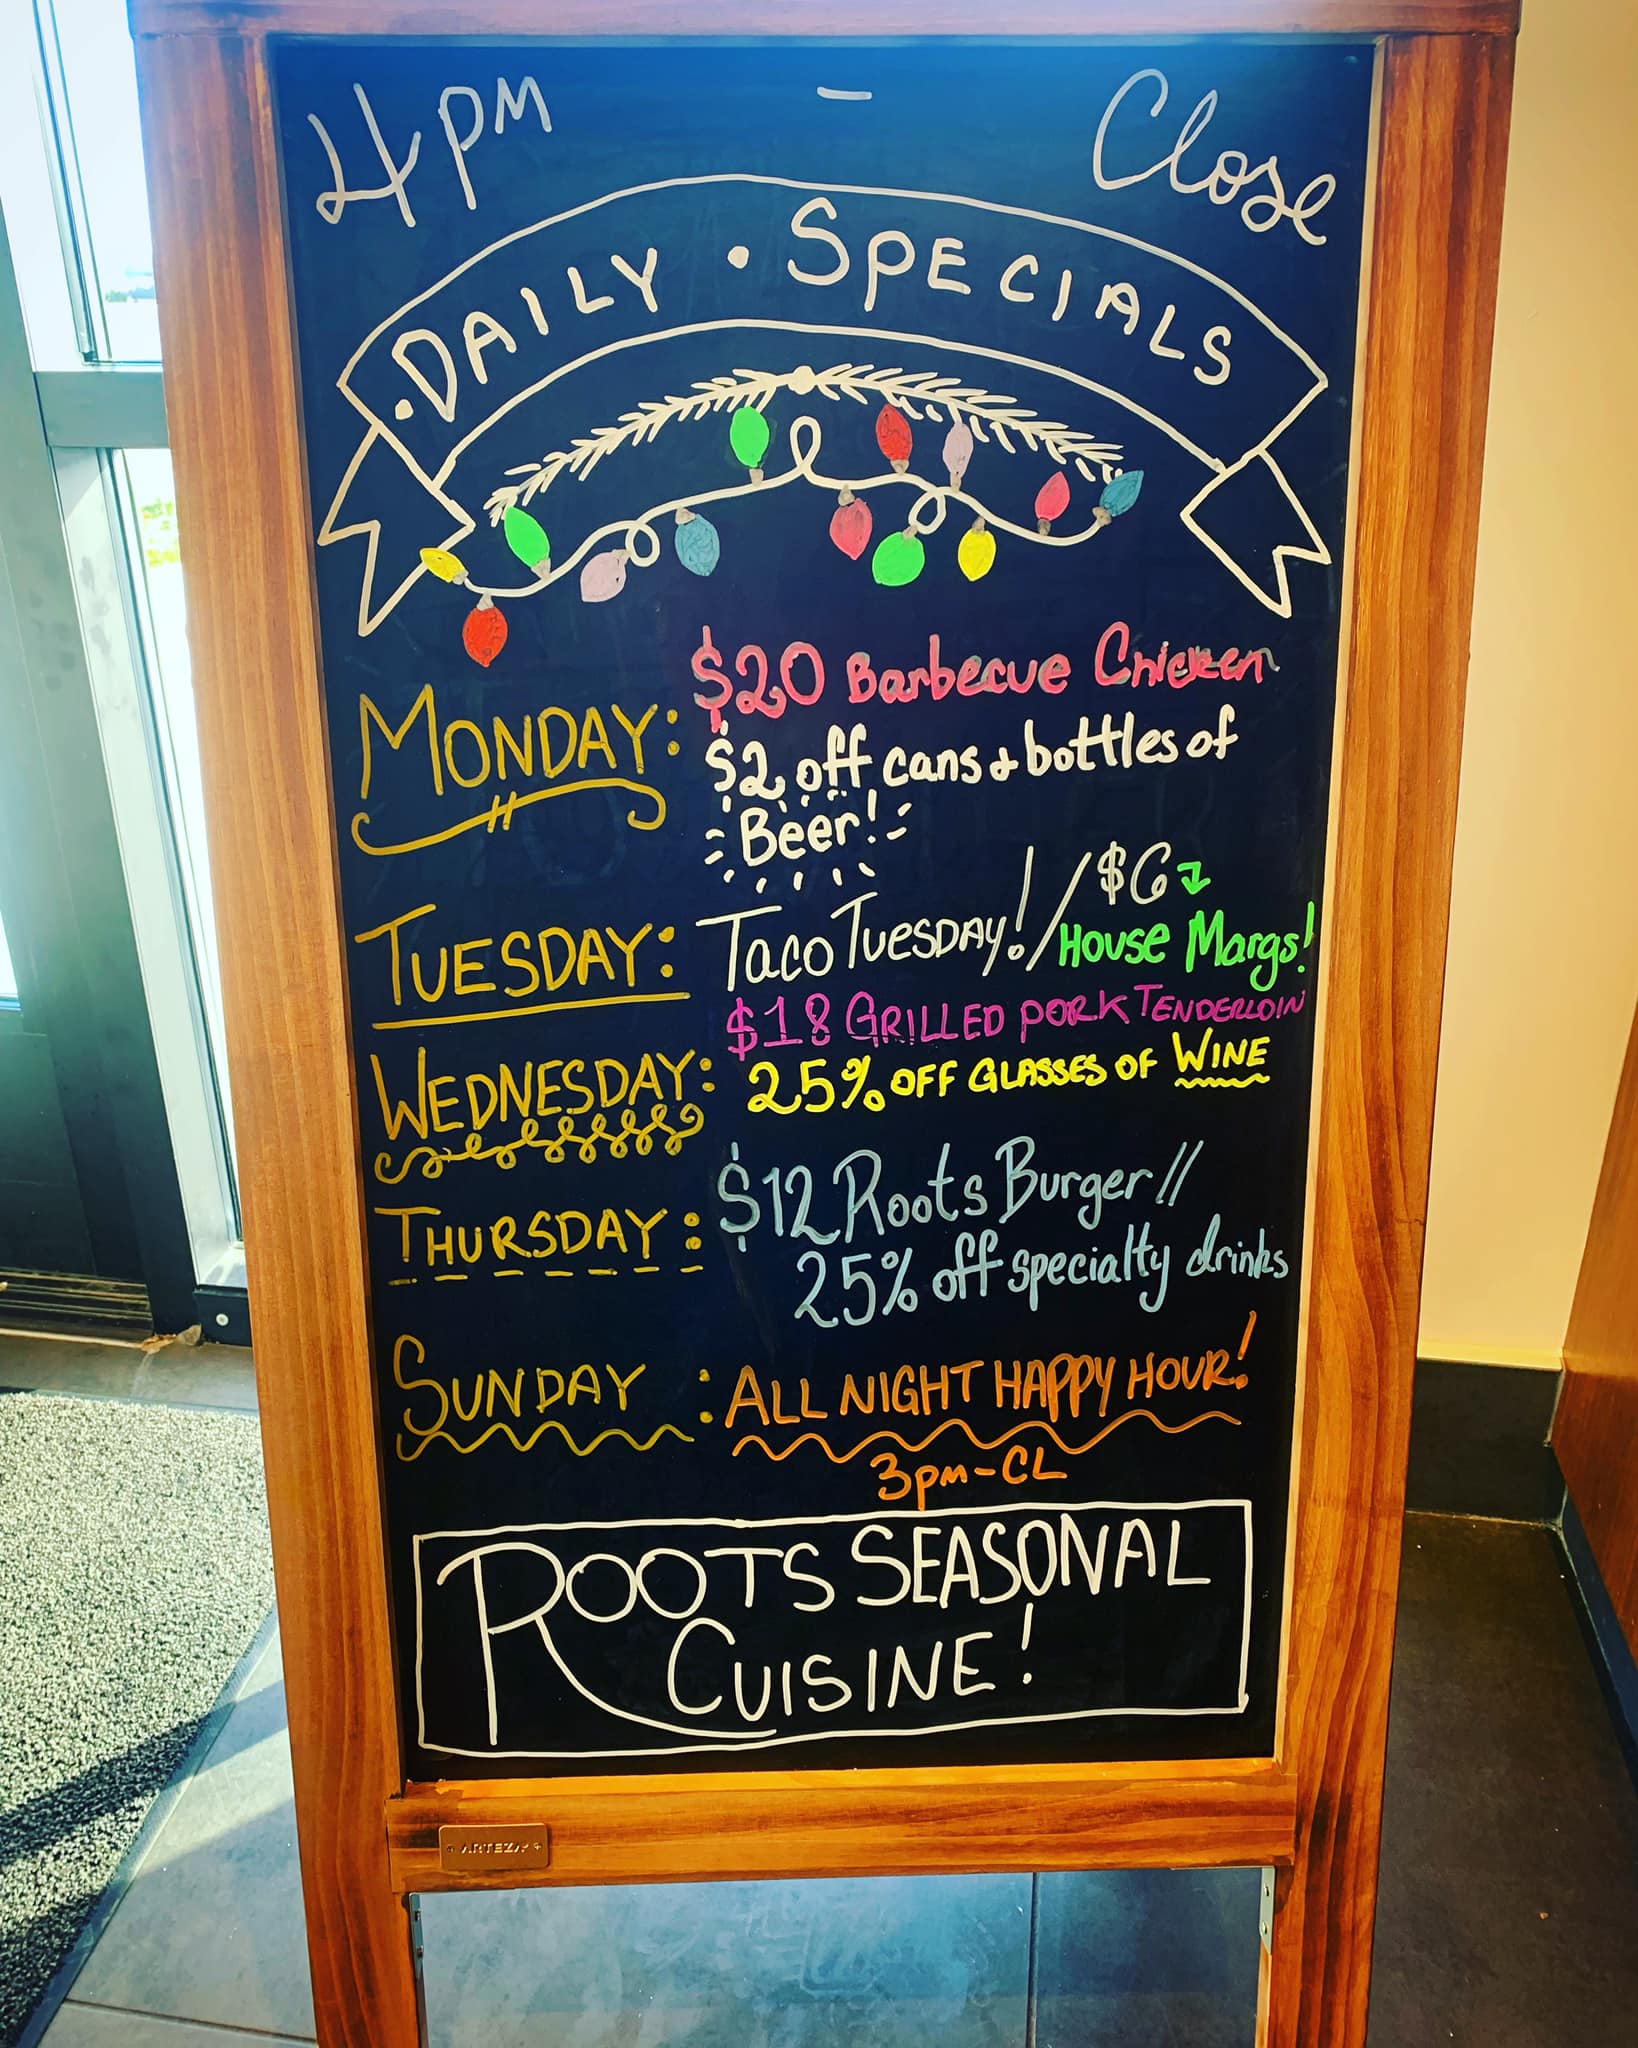 4PM - Close
• DAILY • SPECIALS
MONDAY: $20 Barbecue Chicken
$2 off cans & bottles of
Beer!
TUESDAY: TACO TUESDAY! / $6
HOUSE Margs!
$18 GRILLED PORK TENDERLOIN
WEDNESDAY: 25% OFF GLASSES OF WINE
THURSDAY: $12 Roots Burger//
25% off specialty drinks
SUNDAY: ALL NIGHT HAPPY HOUR!
3pm-CL
ROOTS SEASONAL
CUISINE!
ARTEZA